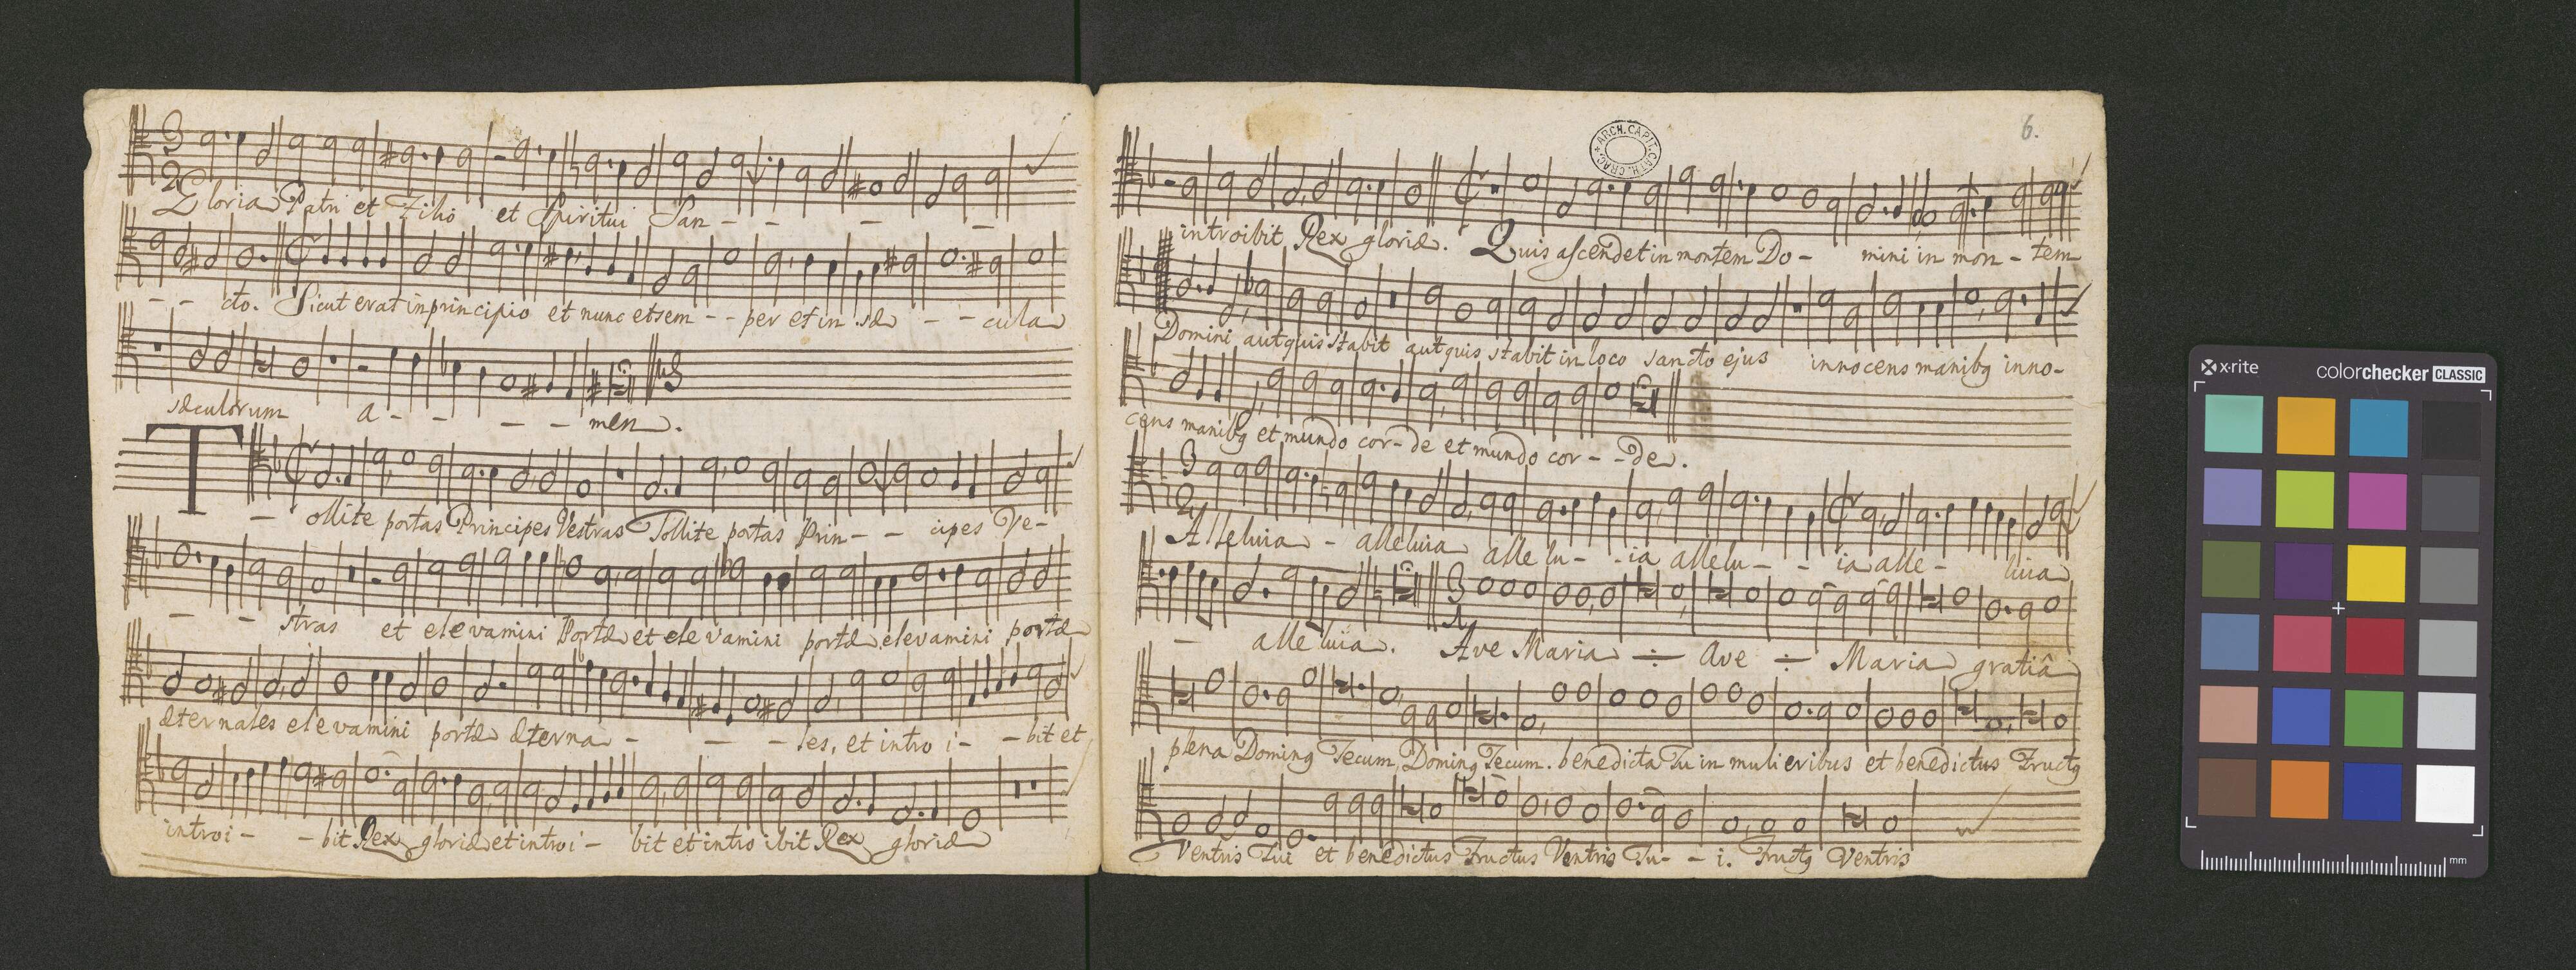 Gloria Patri et Filio et Spiritui San - - - - -
- - cto. Sicut erat in principio et nunc et sem - - per et in sæ - - cula
sæculorum a - - - - men.
Tollite portas Principes Vestras Tollite portas Prin - - cipes Ve -
- - stras et elevamini Portæ et elevamini portæ elevamini portæ
æternales elevamini portæ æterna - - - les, et intro i - - bit et
introi - - bit Rex gloriæ et introi - bit et intro ibit Rex gloriæ
6.
ARCH. CAPIT. CATH. CRAC.
introibit Rex gloriæ. Quis ascendet in montem Do - mini in mon - tem
Domini aut quis stabit aut quis stabit in loco sancto ejus innocens manibg inno -
cens manibg et mundo cor - de et mundo cor - - de.
Alleluia - alleluia alle lu - - ia allelu - - ia alle - luia
- alleluia. Ave Maria ÷ Ave ÷ Maria gratiâ
plena Doming Tecum, Doming Tecum. benedicta Tu in mulieribus et benedictus Fructg
Ventris Tui et benedictus Fructus Ventris Tu - - i. Fructg Ventris
x·rite colorchecker CLASSIC
mm